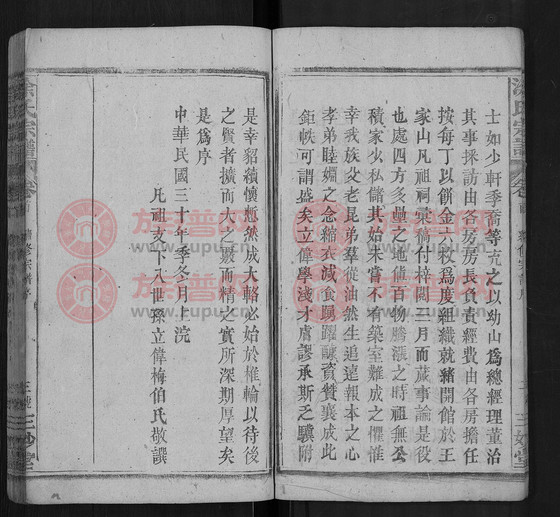 士如少軒季喬等克之以幼山為總經理董治
其事採訪由各房房長負責經費由各房擔任
按每丁以餅金六枚為度組織就緒開館於王
家山凡祖祠稾稿付梓閱三月而蕆事諭是役
也處四方多壘之地值百物騰漲之時祖無公
積家少私儲其始未嘗不有築室難成之懼惟
幸我族父老昆弟羣從油然生追遠報本之心
孝弟睦婣之念縮衣減食踴躍釀資贊襄成此
鉅帙可謂盛矣立偉學淺才膚謬承斯乏驥附
是幸貂續懷慙然成大輅必始於椎輪以待後
之賢者擴而大之覈而精之實所深期厚望矣
是為序
中華民國三十年季冬月上浣
凡祖支下入世孫立偉梅伯氏敬譔
涂氏宗譜
卷首
續修宗譜序
三妙堂
族譜网
www.zupu.cn